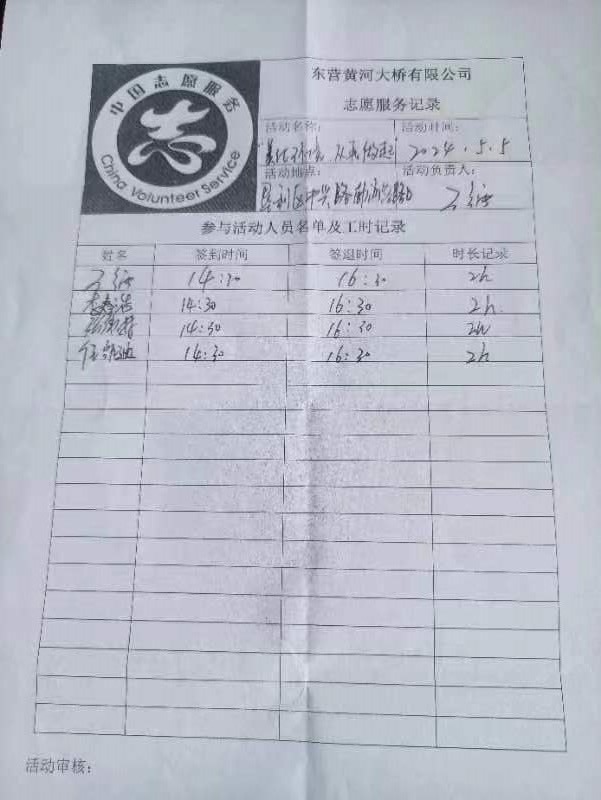 中国志愿服务
志
China Volunteer Service
东营黄河大桥有限公司
志愿服务记录
活动名称:
活动时间:
2024.5.5
活动地点:
活动负责人:
垦利区中兴路
参与活动人员名单及工时记录
姓名 签到时间 签退时间 时长记录
14:30 16:30 2h
14:30 16:30 2h
14:30 16:30 2h
14:30 16:30 2h
活动审核: